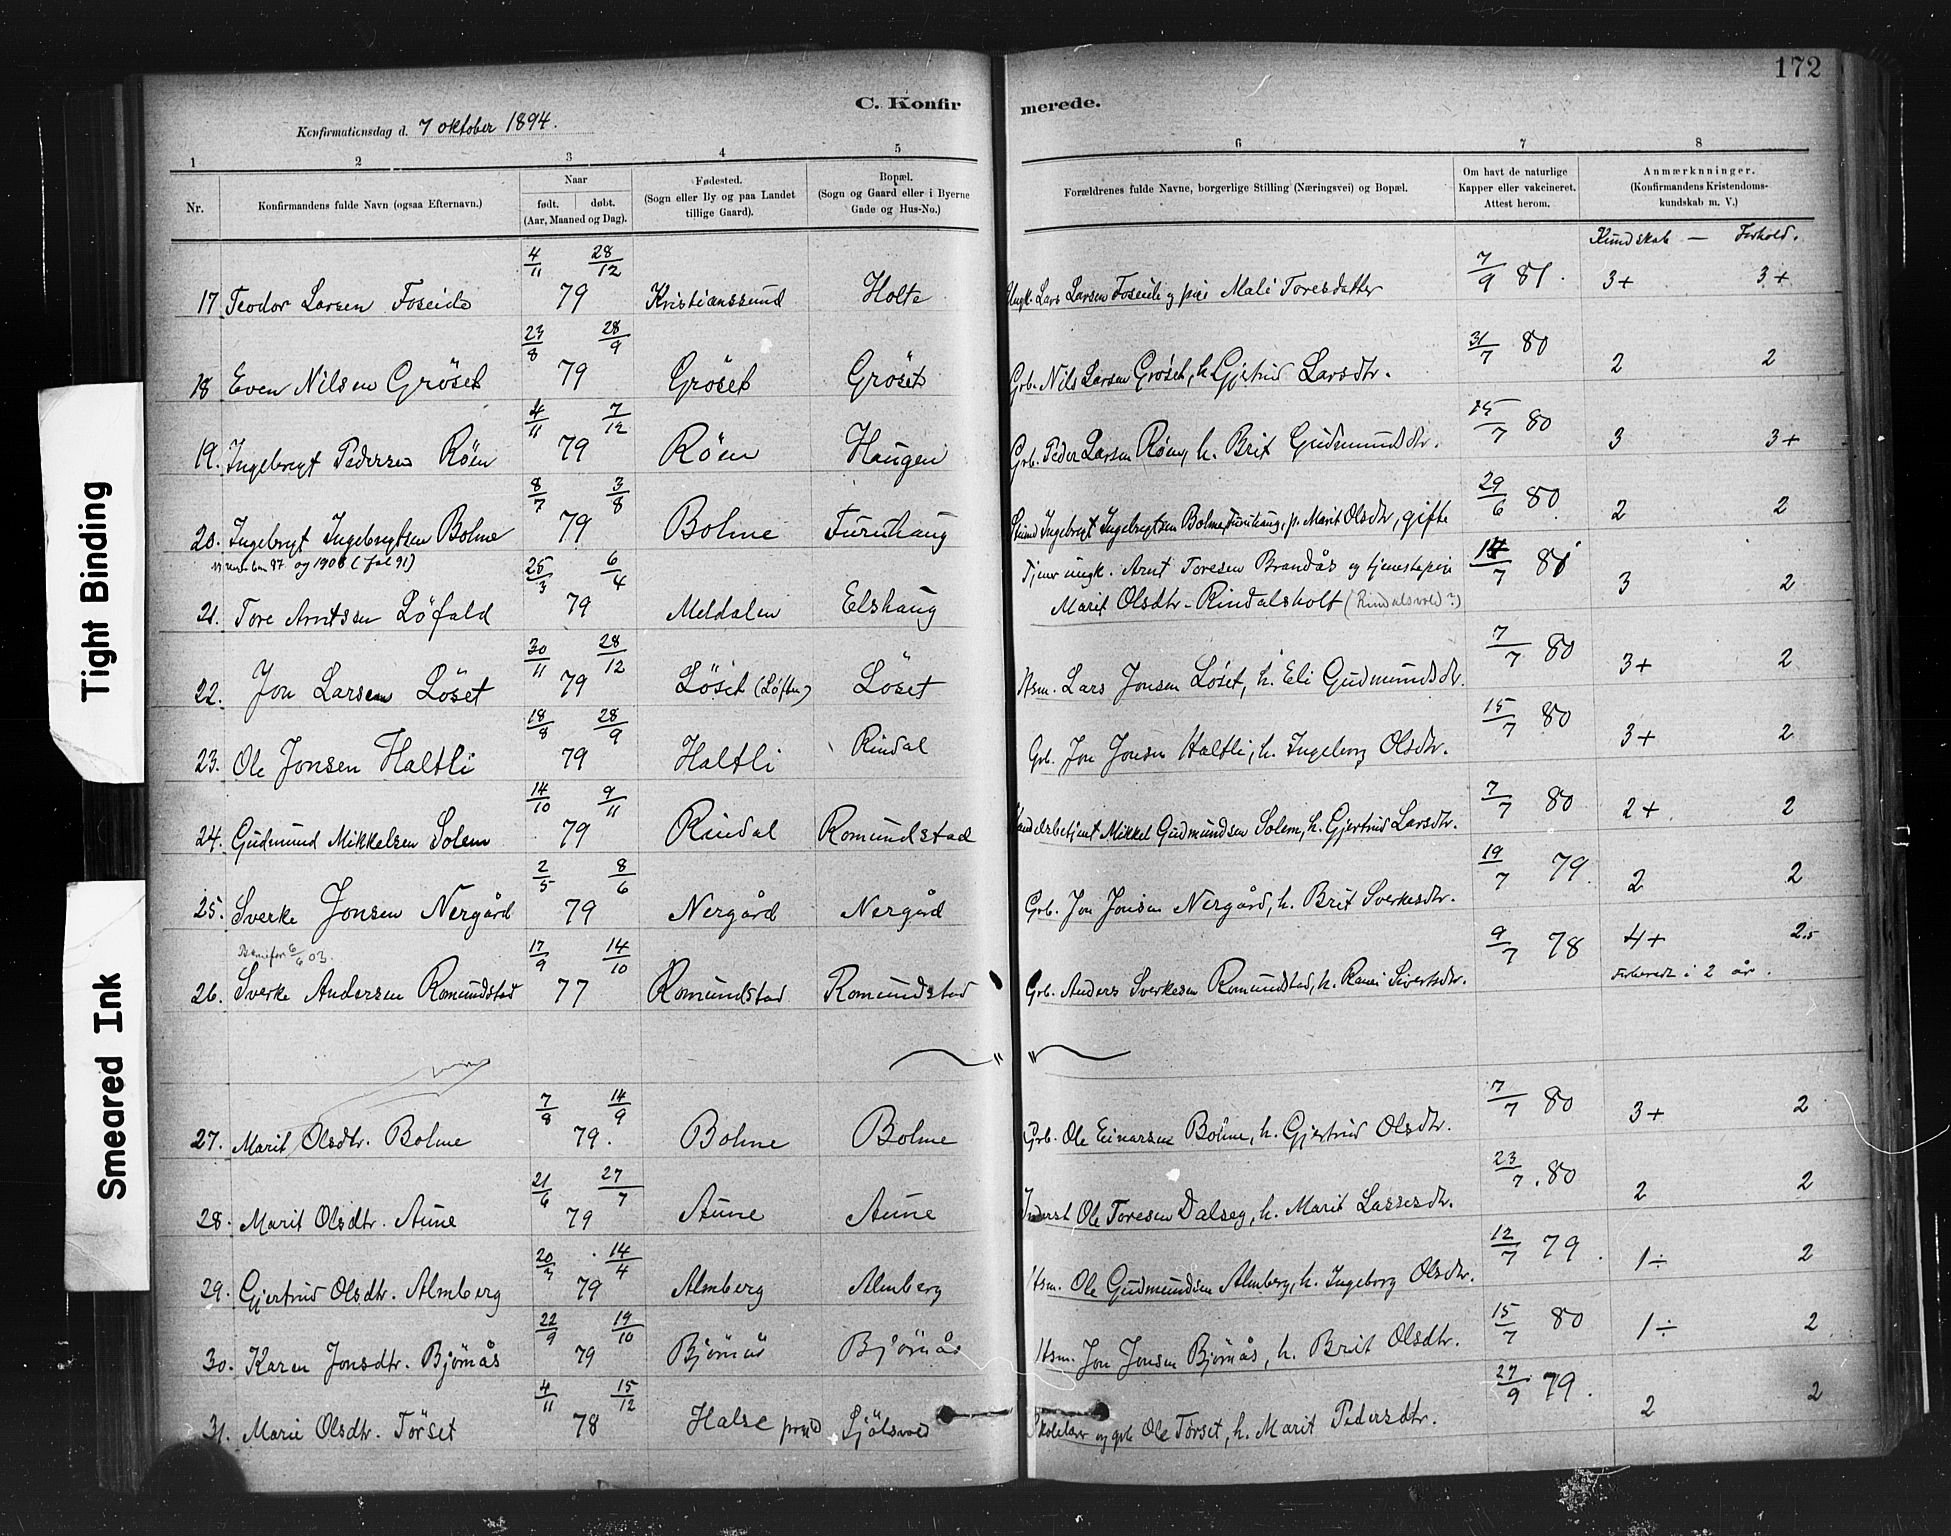 172
C. Konfirmerede.
Konfirmationsdag d. 7 oktober 1894.
1 2 3 4 5 6 7 8
Nr. Konfirmandens fulde Navn (ogsaa Efternavn.) Naar født. døbt. (Aar, Maaned og Dag). Fødested. (Sogn eller By og paa Landet tillige Gaard). Bopæl. (Sogn og Gaard eller i Byerne Gade og Hus-No.) Forældrenes fulde Navne, borgerlige Stilling (Næringsvei) og Bopæl. Om havt de naturlige Kapper eller vakcineret. Attest herom. Anmærkninger. (Konfirmandens Kristendomskundskab m. V.)
Kundskab — Forhold.
17. Teodor Larsen Foseide 4/11 28/12 79 Kristianssund Holte Ungk. Lars Larsen Foseide og pige Mali Toresdatter 7/9 81. 3+ 3+
18 Even Nilsen Gröset 23/8 28/9 79 Gröset Gröset Grb. Nils Larsen Grøset, h. Gjertrud Larsdtr. 31/7 80 2 2
19. Ingebrigt Pedersen Röen 4/11 7/12 79 Röen Haugen Grb. Peder Larsen Røen, h. Brit Gudmundsdtr. 15/7 80 3 3+
20. Ingebrygt Ingebrygtsen Bolme 8/7 3/8 79 Bolme Furuhaug Ingebrygt Ingebrygtsen Bolme, Furuhaug, p. Marit Olsdtr, gifte 29/6 80 2 2
og 1906 (fol 91)
21. Tore Arntsen Löfald 25/3 6/4 79 Meldalen Elshaug Tjener ungk. Arnt Toresen Brandås og tjenestepige Marit Olsdtr - Rindalsholt (Rindalsvold?) 14/7 81 3 2
22. Jon Larsen Löset 30/11 28/12 79 Löset (Løften) Löset Hsm. Lars Jonsen Løset, h. Eli Gudmundsdtr. 7/7 80 3+ 2
23. Ole Jonsen Haltli 18/8 28/9 79 Haltli Rindal Grb. Jon Jonsen Haltli, h. Ingeborg Olsdtr. 15/7 80 3+ 2
24. Gudmund Mikkelsen Solem 14/10 9/11 79 Rindal Romundstad Handelsbetjent Mikkel Gudmundsen Solem, h. Gjertrud Larsdtr. 7/7 80 2+ 2
25. Sverke Jonsen Nergård 2/5 8/6 79 Nergård Nergård Grb. Jon Jonsen Nergård, h. Brit Sverkesdtr. 19/7 79 2 2
6/6 03.
26. Sverke Andersen Romundstad 17/9 14/10 77 Romundstad Romundstad Grb. Anders Sverkesen Romundstad, h. Rani Sivertsdtr. 9/7 78 4+ 2.5
Forberedt i 2 år.
27. Marit Olsdtr. Bolme 7/8 14/9 79. Bolme Bolme Grb. Ole Einarsen Bolme, h. Gjertrud Olsdtr. 7/7 80 3+ 2
28. Marit Olsdtr. Aune 21/6 27/7 79 Aune Aune Inderst Ole Toresen Dalseg, h. Marit Lassesdtr. 23/7 80 2 2
29. Gjertrud Olsdtr. Almberg 20/3 14/4 79 Almberg Almberg Hsm. Ole Gudmundsen Almberg, h. Ingeborg Olsdtr. 12/7 79. 1÷ 2
30. Karen Jonsdtr. Bjørnås 22/9 19/10 79 Bjørnås Bjørnås Hsm. Jon Jonsen Bjørnås, h. Brit Olsdtr. 15/7 80 1÷ 2
31. Marie Olsdtr. Törset 4/11 15/12 78 Halse præstd Sjölsvold Skolelærer og grb Ole Törset, h. Marit Pedersdtr. 27/9 79. 2 2
Tight Binding
Smeared Ink